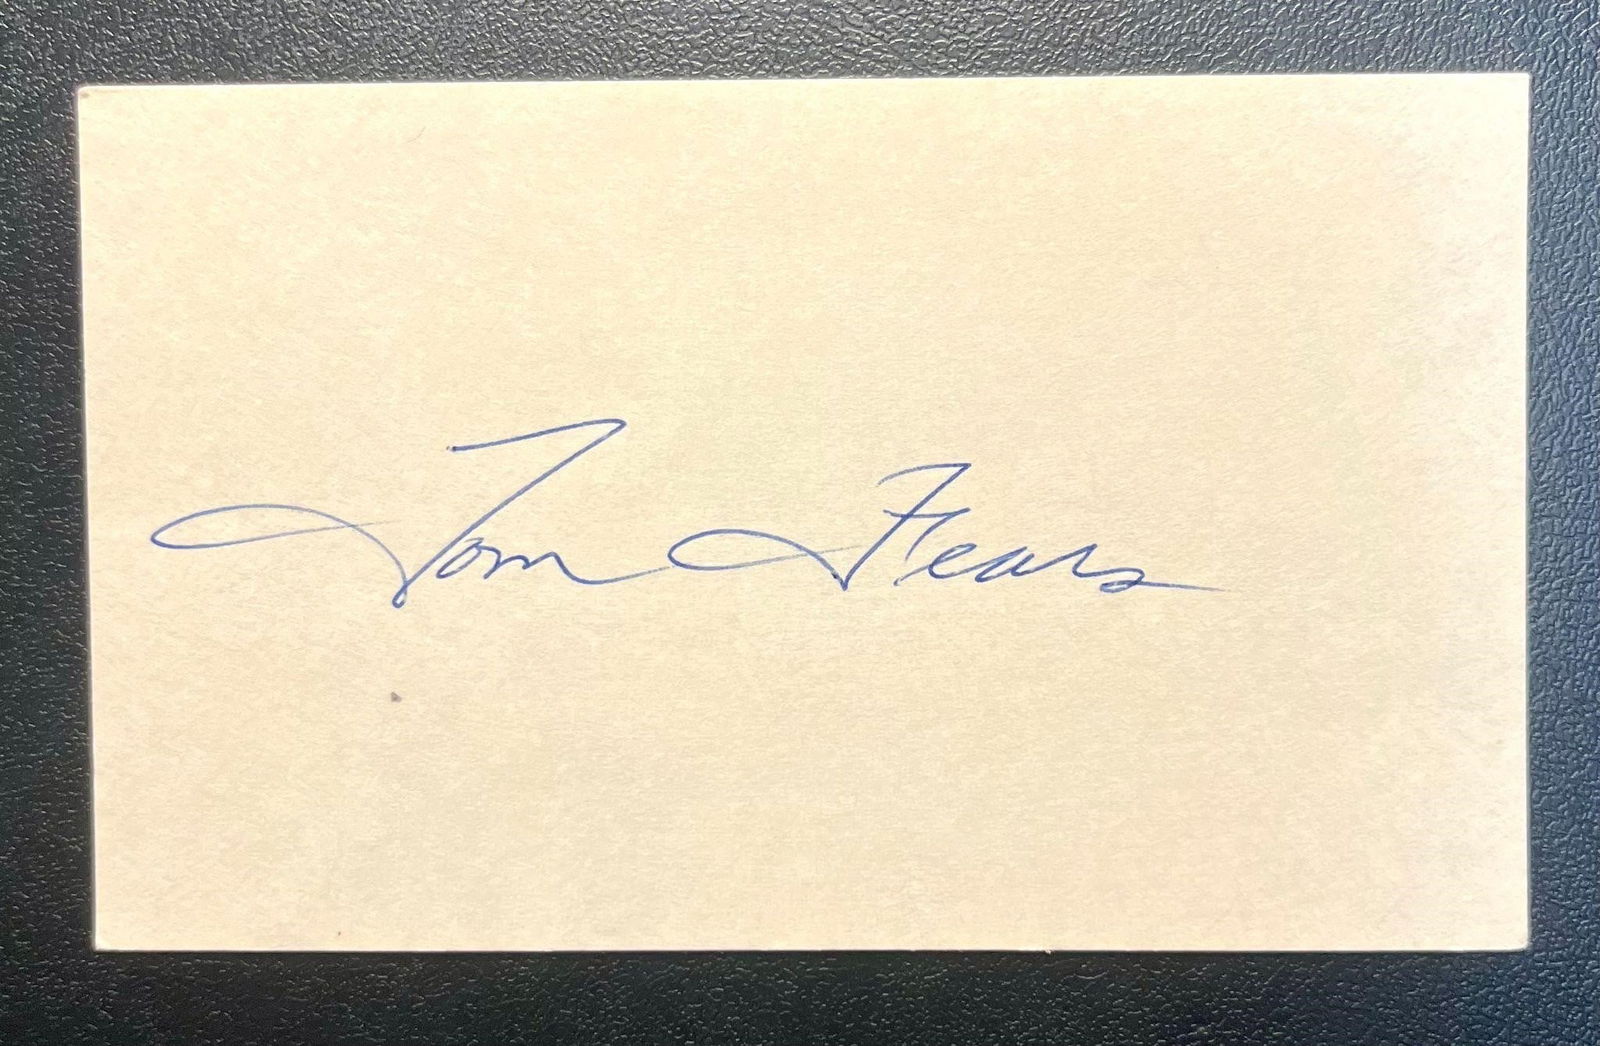 Tom Fears